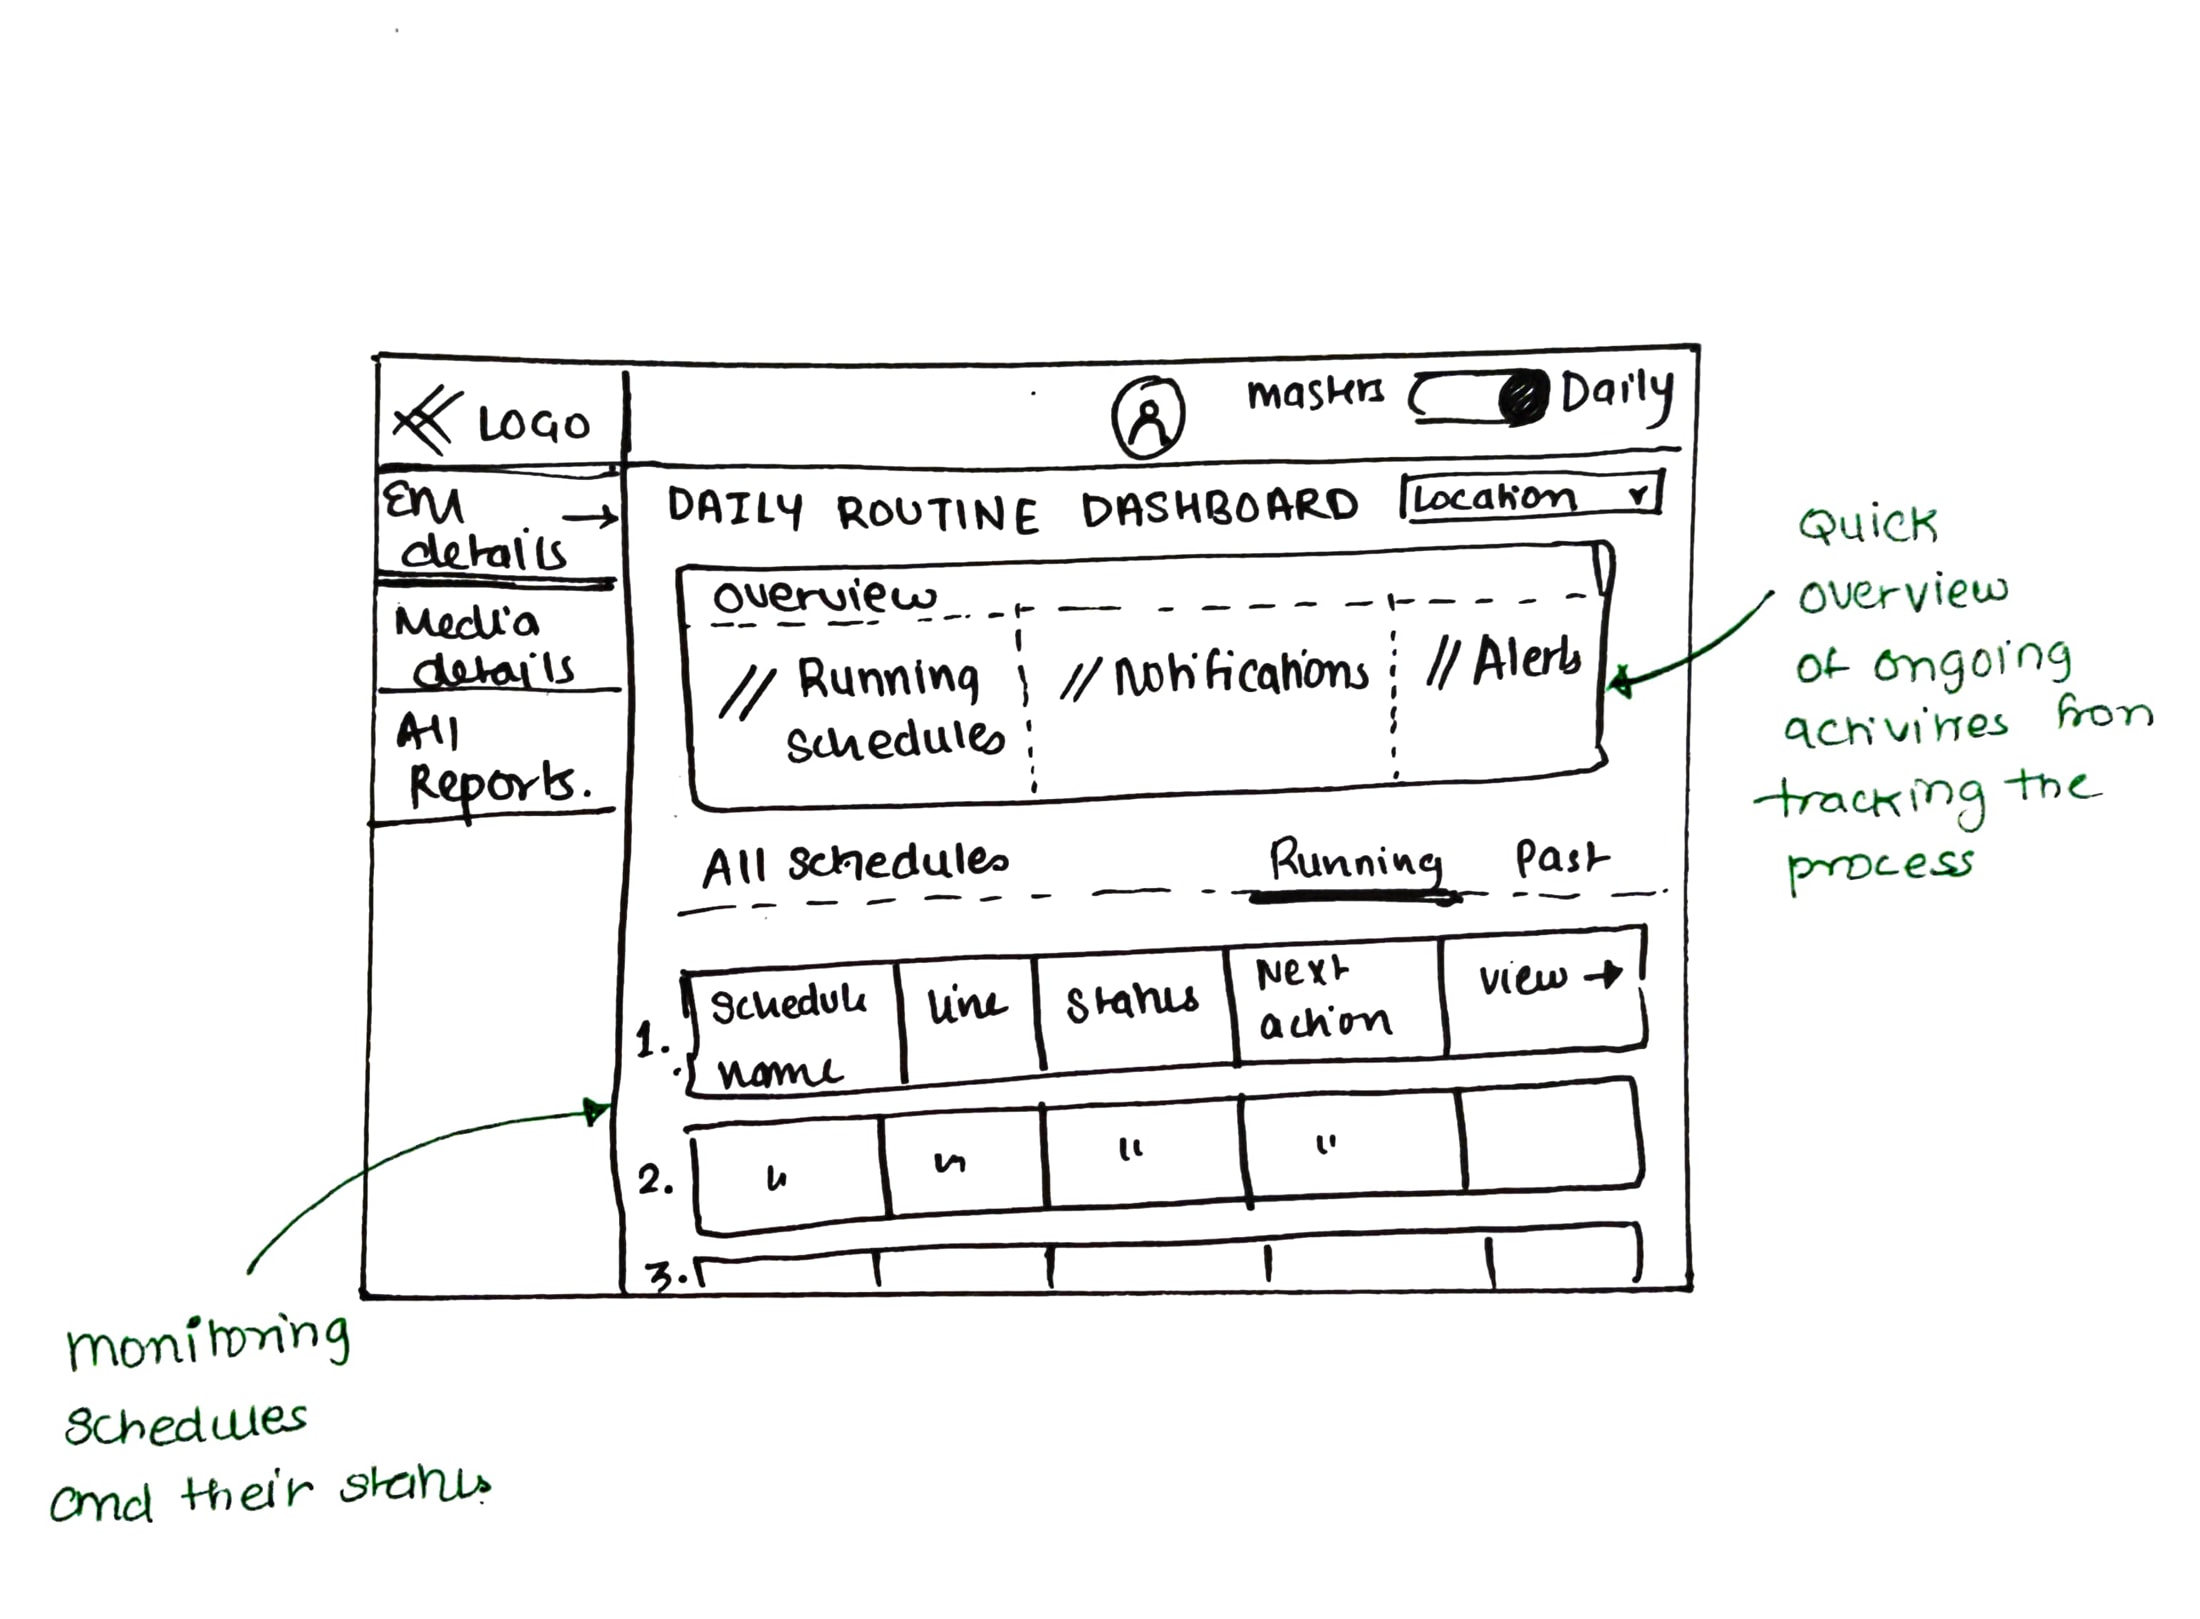 LOGO
masters
Daily
EM
details
Media
details
All
Reports.
DAILY ROUTINE DASHBOARD
Location
Overview
// Running
schedules
// Notifications
// Alerts
All schedules
Running
Past
1.
schedule
name
line
status
Next
action
view →
2.
"
"
"
"
3.
Quick
overview
of ongoing
activities from
tracking the
process
monitoring
schedules
and their status.